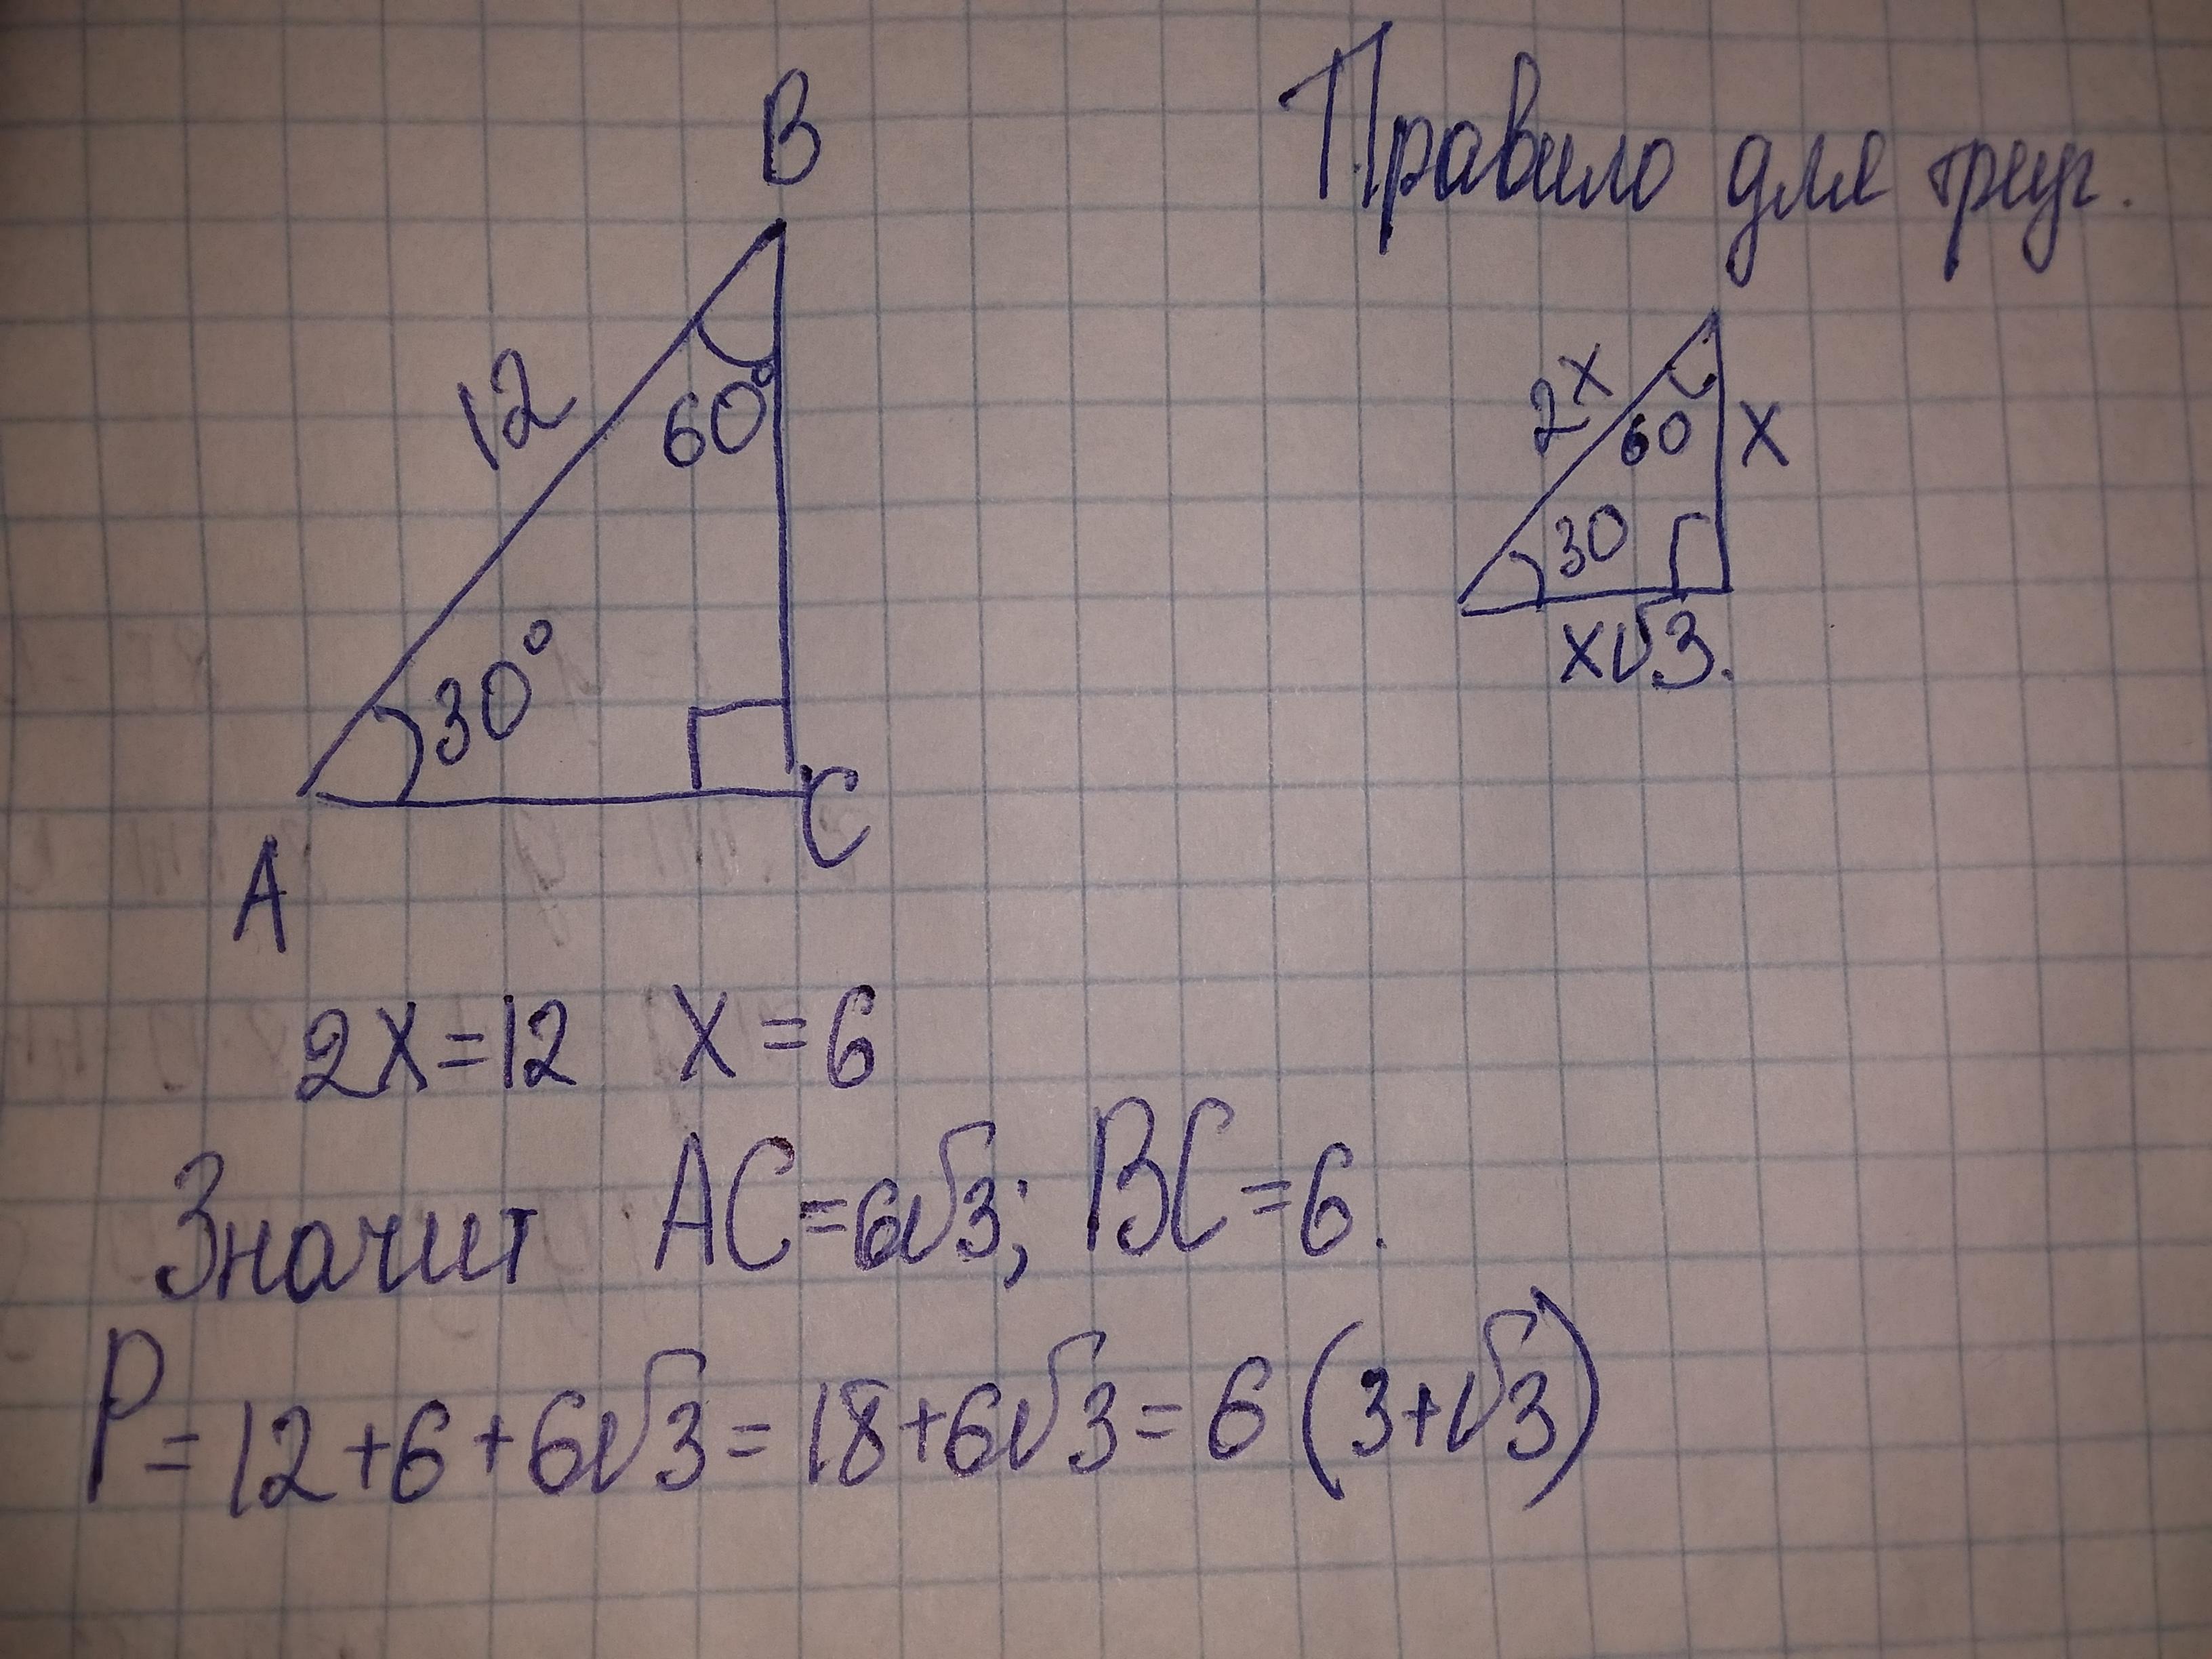 B
12
60°
30°
A
C
Правило для треуг.
2x
60
x
30
x√3.
2x=12 x=6
Значит AC=6√3; BC=6.
P=12+6+6√3=18+6√3=6(3+√3)